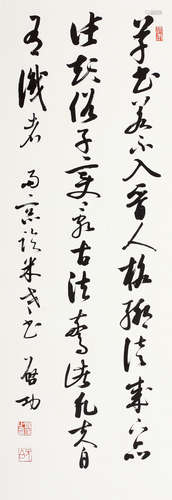 草書若不入晉人格輒徒成下品
張顛俗子變亂古法驚諸凡夫自
有識者 米老書 啟功